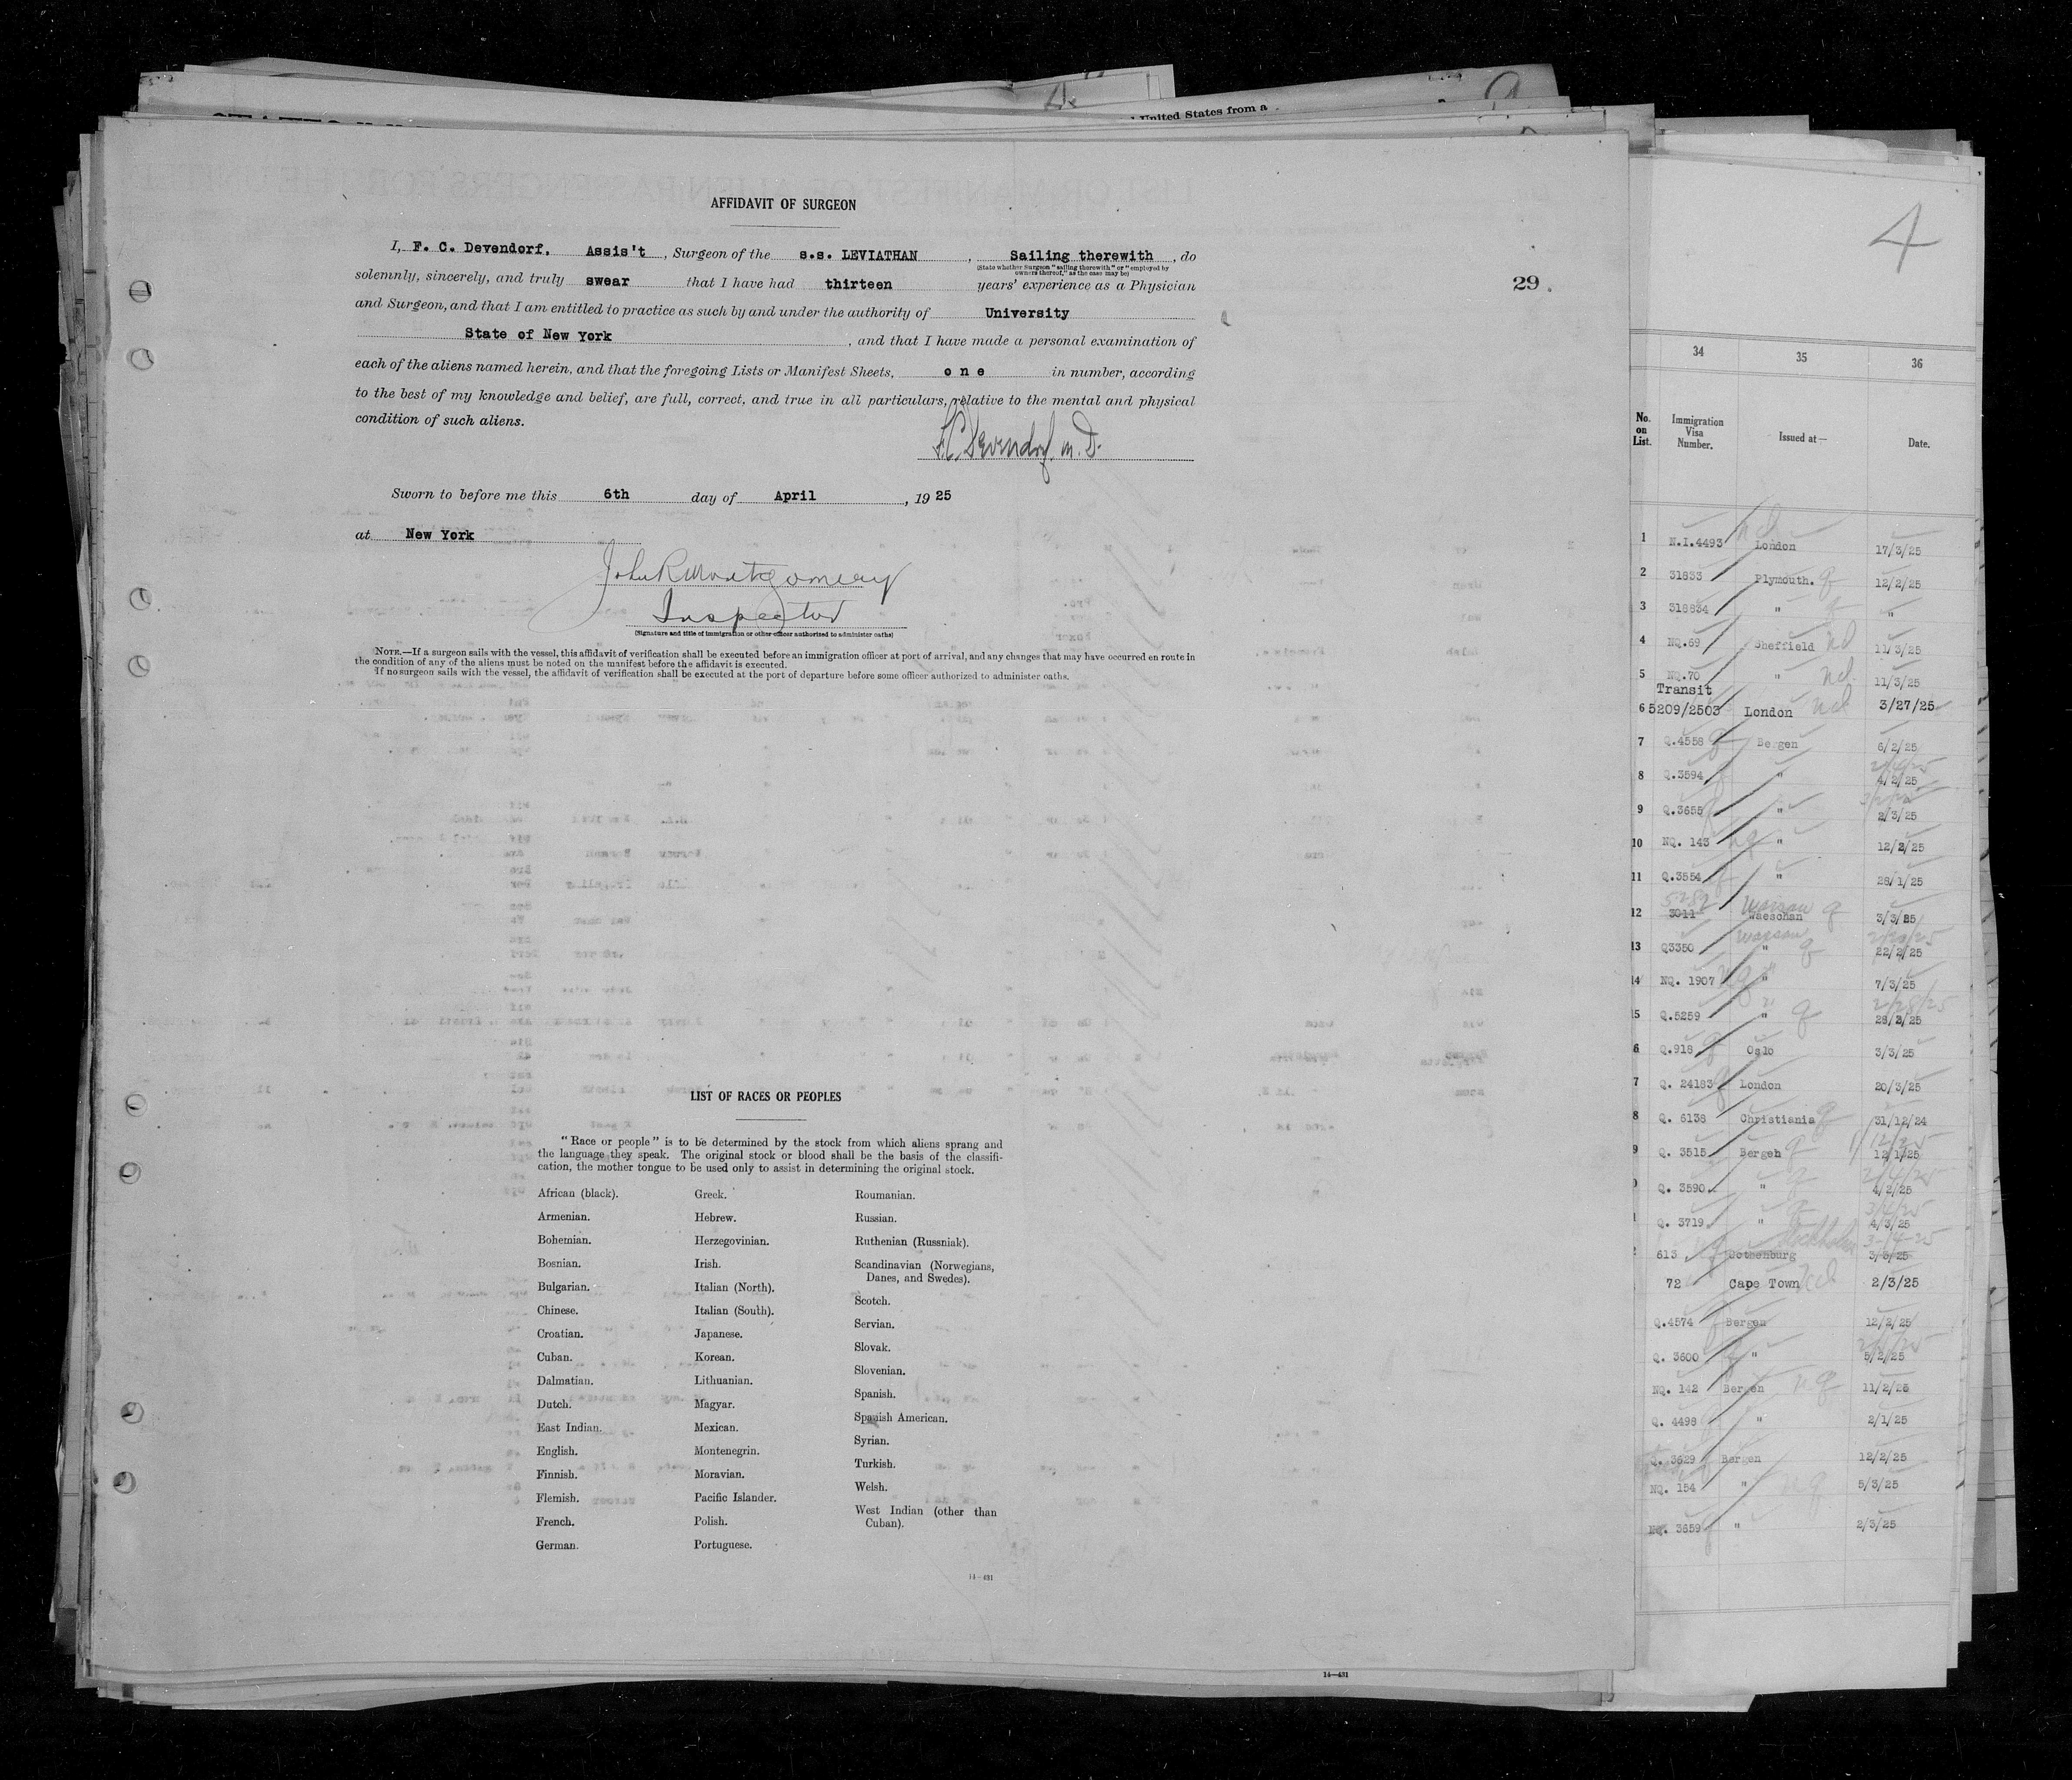 United States from a
AFFIDAVIT OF SURGEON
I, F. C. Devendorf, Assis't, Surgeon of the s.s. LEVIATHAN, Sailing therewith, do
(State whether Surgeon "sailing therewith" or "employed by
owners thereof," as the case may be)
solemnly, sincerely, and truly swear that I have had thirteen years' experience as a Physician
29.
and Surgeon, and that I am entitled to practice as such by and under the authority of University
State of New York, and that I have made a personal examination of
each of the aliens named herein, and that the foregoing Lists or Manifest Sheets, one in number, according
to the best of my knowledge and belief, are full, correct, and true in all particulars, relative to the mental and physical
condition of such aliens.
F.C. Devendorf. M. D.
Sworn to before me this 6th day of April, 1925
at New York
John R Montgomery
Inspector
(Signature and title of immigration or other officer authorized to administer oaths)
NOTE.—If a surgeon sails with the vessel, this affidavit of verification shall be executed before an immigration officer at port of arrival, and any changes that may have occurred en route in
the condition of any of the aliens must be noted on the manifest before the affidavit is executed.
If no surgeon sails with the vessel, the affidavit of verification shall be executed at the port of departure before some officer authorized to administer oaths.
LIST OF RACES OR PEOPLES
"Race or people" is to be determined by the stock from which aliens sprang and
the language they speak. The original stock or blood shall be the basis of the classifi-
cation, the mother tongue to be used only to assist in determining the original stock.
African (black).
Armenian.
Bohemian.
Bosnian.
Bulgarian.
Chinese.
Croatian.
Cuban.
Dalmatian.
Dutch.
East Indian.
English.
Finnish.
Flemish.
French.
German.
Greek.
Hebrew.
Herzegovinian.
Irish.
Italian (North).
Italian (South).
Japanese.
Korean.
Lithuanian.
Magyar.
Mexican.
Montenegrin.
Moravian.
Pacific Islander.
Polish.
Portuguese.
Roumanian.
Russian.
Ruthenian (Russniak).
Scandinavian (Norwegians,
Danes, and Swedes).
Scotch.
Servian.
Slovak.
Slovenian.
Spanish.
Spanish American.
Syrian.
Turkish.
Welsh.
West Indian (other than
Cuban).
14-431
14—431
4
34 35 36
No. on List. Immigration Visa Number. Issued at— Date.
1 N.I.4493 London 17/3/25
2 31833 Plymouth. q 12/2/25
3 318834 " q "
4 NQ.69 Sheffield 11/3/25
5 NQ.70 " 11/3/25
Transit
6 5209/2503 London 3/27/25
7 Q.4558 Bergen 6/2/25
8 Q.3594 " 4/2/25
9 Q.3655 " 2/3/25
10 NQ. 143 " 12/2/25
11 Q.3554 " 28/1/25
5282 Warsaw q
12 3011 Waeschan 3/3/25
Warsaw 2/22/25
13 Q3350 " q 22/2/25
14 NQ. 1907 " 7/3/25
2/28/25
5 Q.5259 " q 28/2/25
6 Q.918 Oslo 3/3/25
7 Q. 24183 London 20/3/25
8 Q. 6138 Christiania q 31/12/24
9 Q. 3515 Bergen q 12/1/25
0 Q. 3590 " q 4/2/25
1 Q. 3719 " q 4/3/25
Stockholm 3-14-25
2 613 Gothenburg 3/3/25
72 Cape Town 2/3/25
Q.4574 Bergen 12/2/25
Q. 3600 " 5/2/25
NQ. 142 Bergen n q 11/2/25
Q. 4498 " 2/1/25
Q. 3629 Bergen 12/2/25
NQ. 154 " n q 5/3/25
NQ. 3659 " 2/3/25